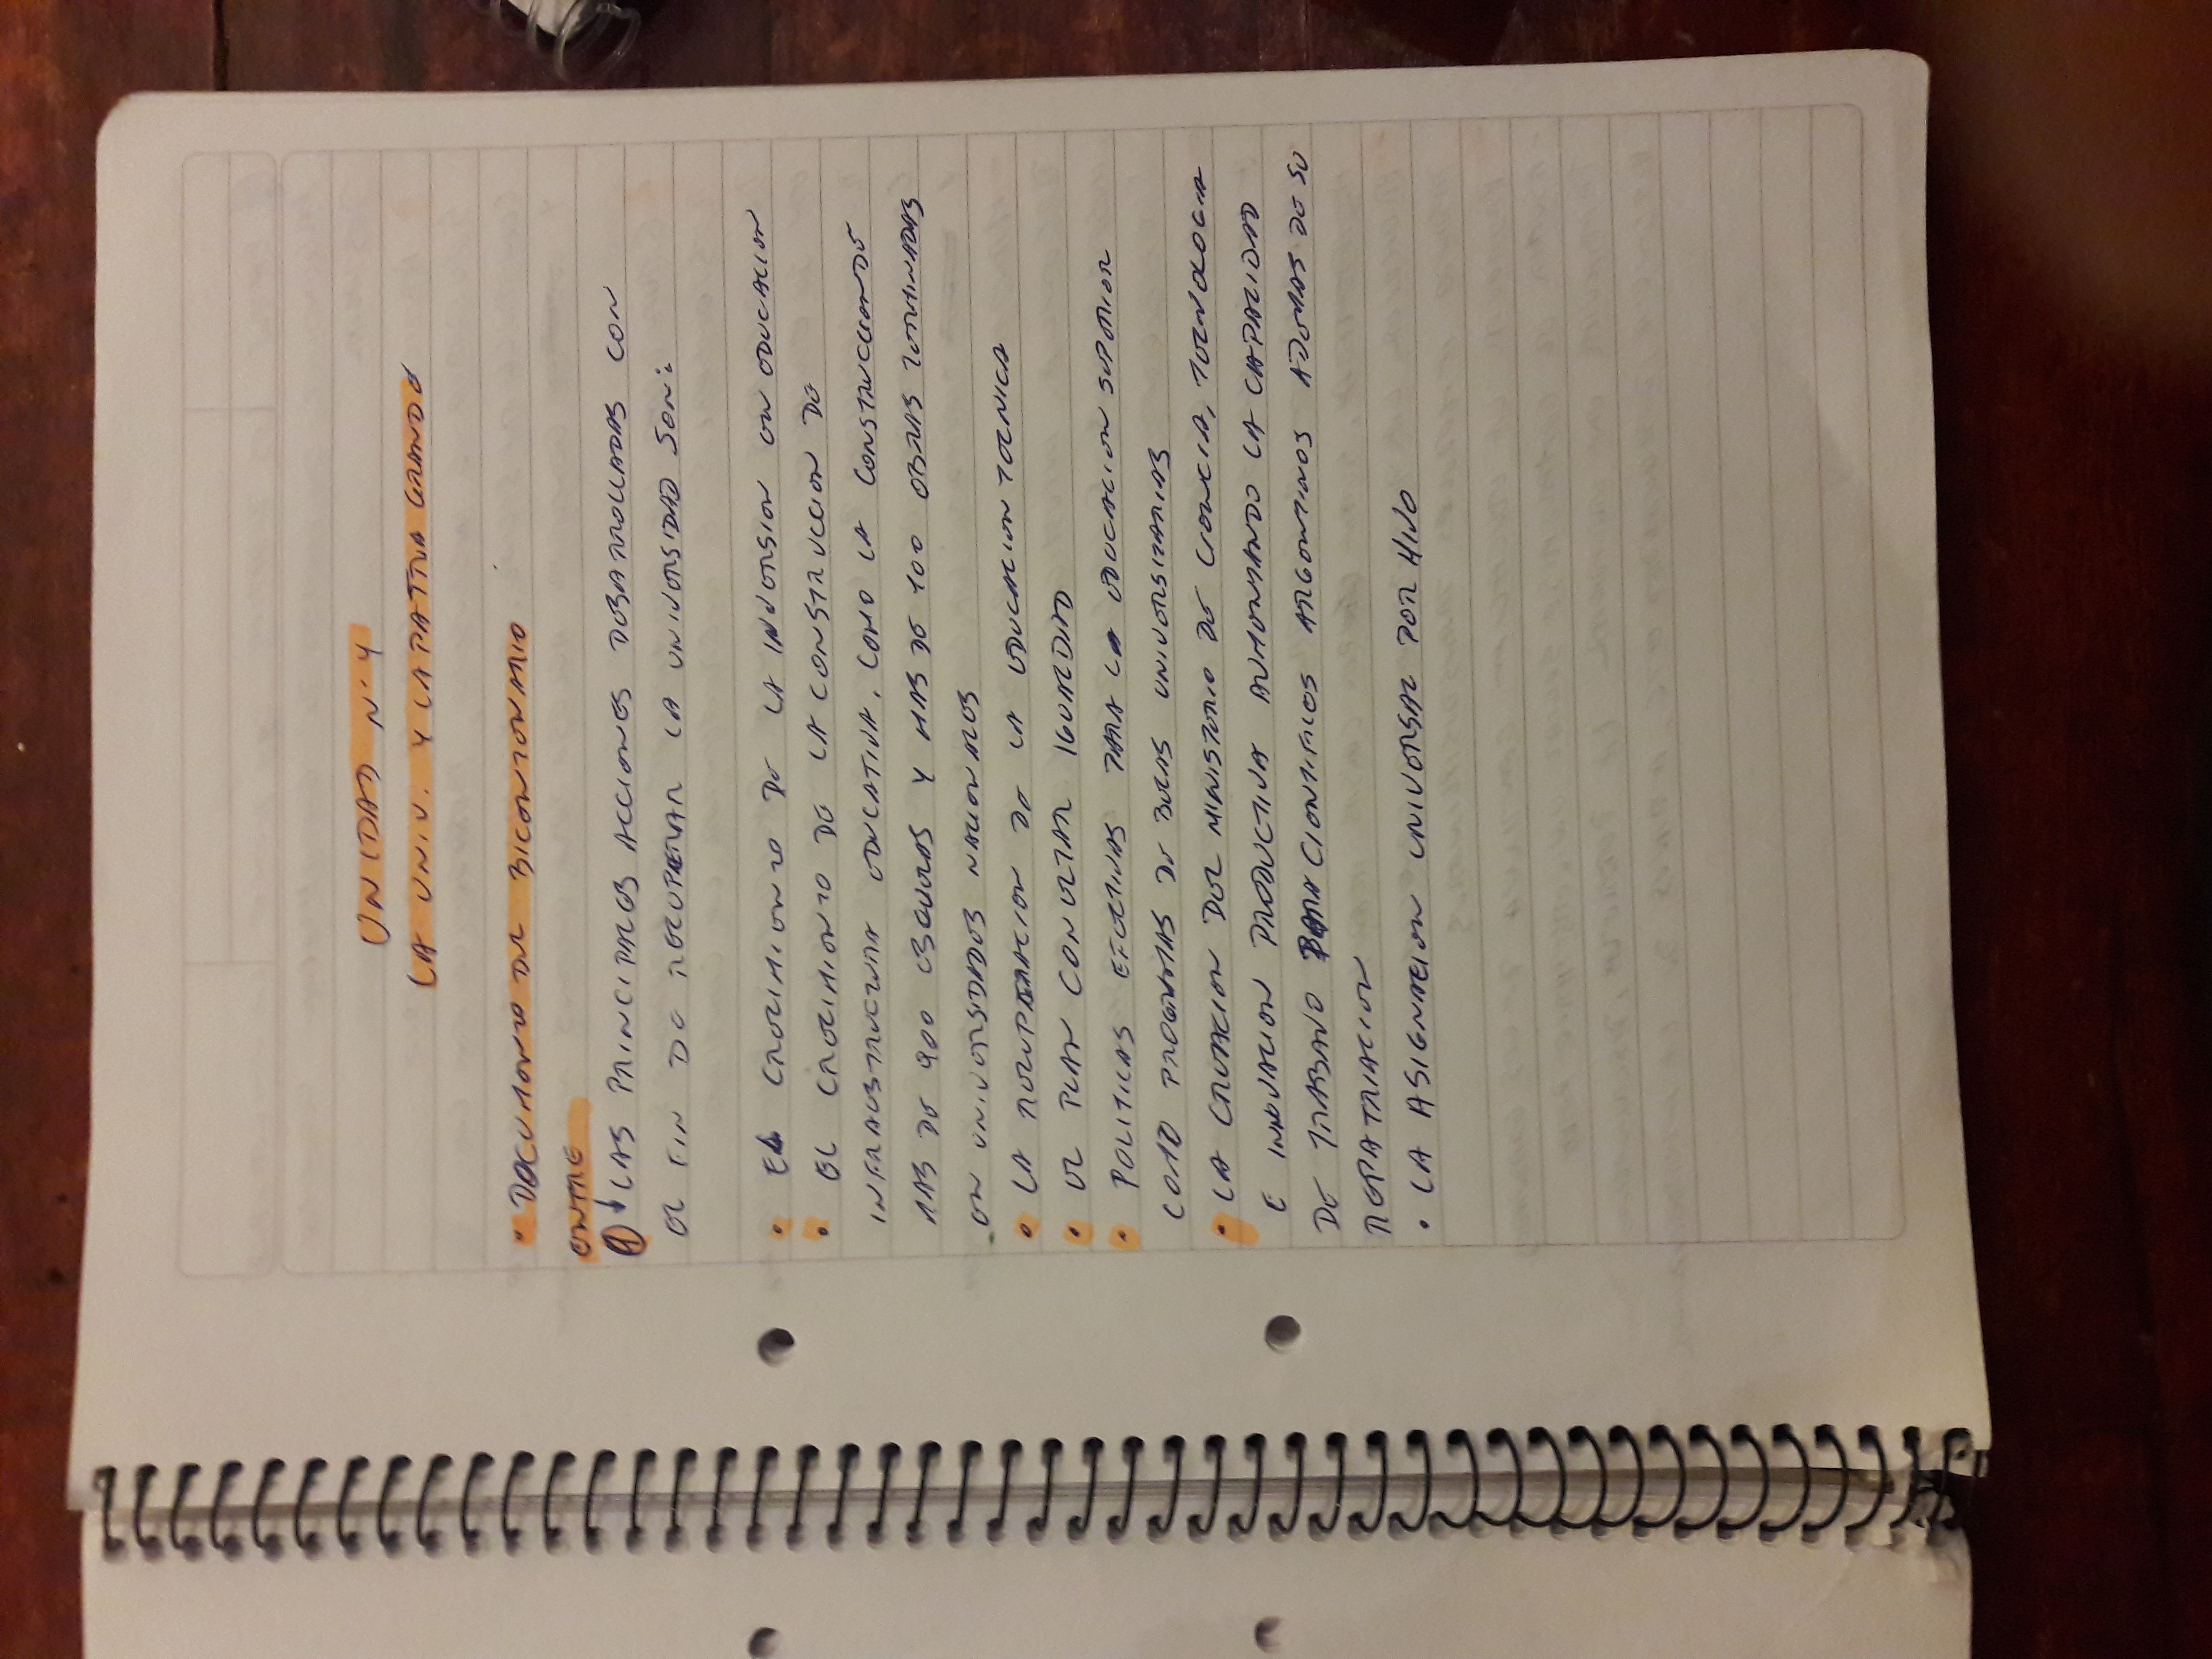 UNIDAD N° 4
LA UNIV. Y LA PATRIA GRANDE
• DOCUMENTO DEL BICENTENARIO
ENTRE
1 ↓ LAS PRINCIPALES ACCIONES DESARROLLADAS CON
EL FIN DE RECUPERAR LA UNIVERSIDAD SON:
• EL CRECIMIENTO DE LA INVERSION EN EDUCACION
• EL CRECIMIENTO DE LA CONSTRUCCION DE
INFRAESTRUCTURA EDUCATIVA, COMO LA CONSTRUCCION DE
MAS DE 900 ESCUELAS Y MAS DE 100 OBRAS TERMINADAS
EN UNIVERSIDADES NACIONALES
• LA RECUPERACION DE LA EDUCACION TECNICA
• EL PLAN CONECTAR IGUALDAD
• POLITICAS EFECTIVAS PARA LA EDUCACION SUPERIOR
COMO PROGRAMAS DE BECAS UNIVERSITARIAS
• LA CREACION DEL MINISTERIO DE CIENCIA, TECNOLOGIA
E INNOVACION PRODUCTIVA AUMENTANDO LA CAPACIDAD
DE TRABAJO PARA CIENTIFICOS ARGENTINOS ADEMAS DE SU
REPATRIACION
• LA ASIGNACION UNIVERSAL POR HIJO